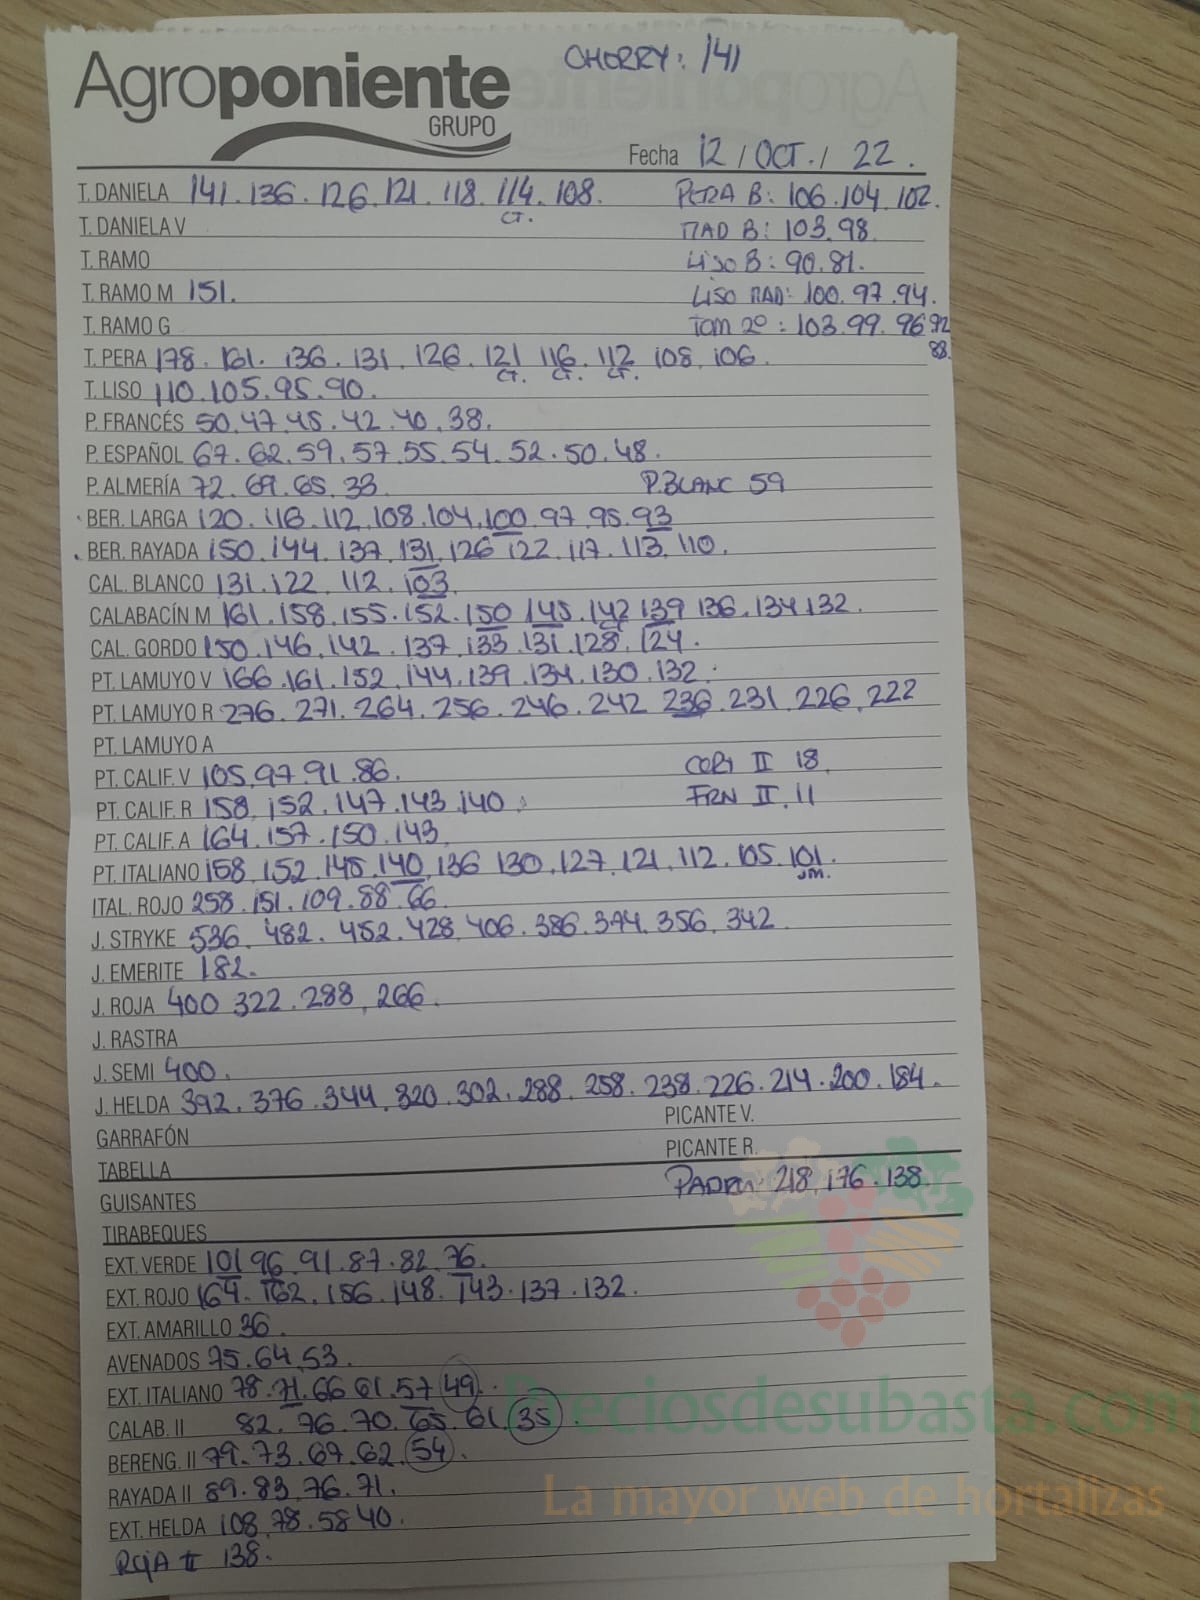 CHERRY: 141
Agroponiente
GRUPO
Fecha 12 / OCT. / 22.
T. DANIELA 141. 136. 126. 121. 118. 114. 108. PERA B: 106. 104. 102.
CT.
T. DANELA V MAD B: 103. 98.
T. RAMO LISO B: 90. 81.
T. RAMO M 151. LISO MAD: 100. 97. 94.
T. RAMO G TOM 2º: 103. 99. 96 92
88.
T. PERA 178. 161. 136. 131. 126. 121 116. 112 108. 106.
CT. CT. CT.
T. LISO 110. 105. 95. 90.
P. FRANCÉS 50. 47. 45. 42. 40. 38.
P. ESPAÑOL 67. 62. 59. 57. 55. 54. 52. 50. 48.
P. ALMERÍA 72. 69. 65. 33 P.BLANC 59
BER. LARGA 120. 116. 112. 108. 104. 100. 97. 95. 93
BER. RAYADA 150. 144. 137. 131. 126 122. 117. 113. 110.
CAL. BLANCO 131. 122. 112. 103.
CALABACÍN M 161. 158. 155. 152. 150 145. 142 139 136. 134 132.
CT
CAL. GORDO 150. 146. 142. 137. 133. 131. 128. 124.
PT. LAMUYO V 166. 161. 152. 144. 139. 134. 130. 132.
PT. LAMUYO R 276. 271. 264. 256. 246. 242 236. 231. 226. 222
PT. LAMUYO A
PT. CALIF. V 105. 97. 91. 86. CORT II 18.
PT. CALIF. R 158. 152. 147. 143. 140. FRN II. 11
PT. CALIF. A 164. 157. 150. 143.
PT. ITALIANO 158. 152. 145. 140. 136 130. 127. 121. 112. 105. 101.
JM.
ITAL. ROJO 258. 151. 109. 88. 66.
J. STRYKE 536. 482. 452. 428. 406. 386. 374. 356. 342
J. EMERITE 182.
J. ROJA 400 322. 288. 266.
J. RASTRA
J. SEMI 400.
J. HELDA 392. 376. 344. 320. 302. 288. 258. 238. 226. 214. 200. 184.
PICANTE V.
GARRAFÓN
PICANTE R.
TABELLA
PADRON 218. 176. 138.
GUISANTES
TIRABEQUES
EXT. VERDE 101 96. 91. 87. 82. 76.
EXT. ROJO 164. 162. 156. 148. 143. 137. 132.
EXT. AMARILLO 36.
AVENADOS 75. 64. 53.
EXT. ITALIANO 78. 71. 66 61. 57 49.
CALAB. II 82. 76. 70. 65. 61. 35.
Preciosdesubasta.com
BERENG. II 79. 73. 67. 62. 54.
RAYADA II 89. 83. 76. 71.
La mayor web de hortalizas
EXT. HELDA 108. 78. 58 40.
ROJA II 138.